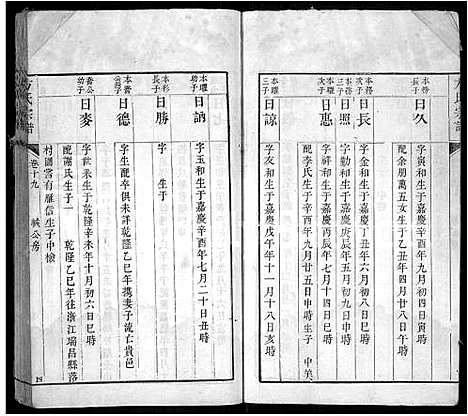 本務長子
日久
字寅和生于嘉慶乙丑年四月初四日寅時
配余朋萬五女生于乙丑年四月廿四日
本務次子
日長
字金和生于嘉慶丁丑年六月初九日丑時
日照
字祥和生于嘉慶庚辰年三月初九日申時
本曜次子
日惠
字祥和生于嘉慶丙辰年七月十四日巳時
配李氏生于辛酉年九月廿五日申時生子 中美
本曜三子
日諒
字友和生于嘉慶戊午年十一月十八日亥時
方氏宗譜
卷十九
緘公房
19
本曜幼子
日訥
字玉和生于嘉慶辛酉年七月二十日丑時
本杉長子
日勝
字 生于
本喬公長子
日德
字生配卒俱未詳乾隆乙巳年携妻子流亡貴邑
喬公幼子
日麥
字世來生于乾隆辛未年十月初六日巳時
配謝氏生子一 乾隆乙巳年往浙江瑞昌縣落
村閭嘗有雁信生子中檢